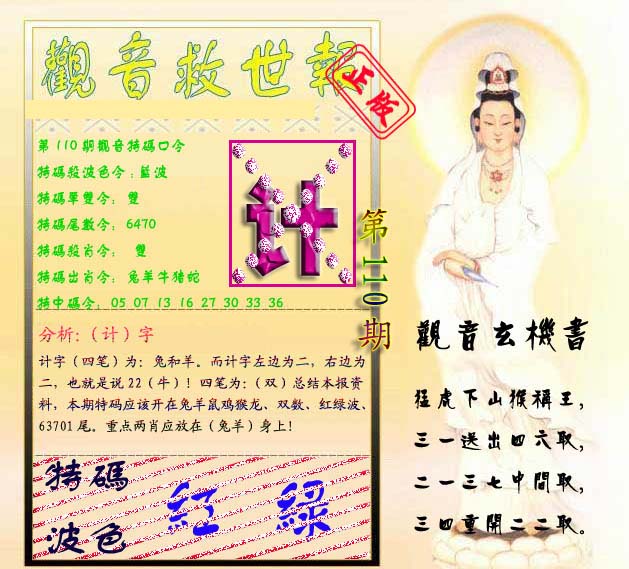 觀音救世報
正版
第110期觀音特碼口令
特碼殺波色令:藍波
特碼單雙令： 雙
特碼尾數令： 6470
特碼殺肖令： 雙
特碼出肖令： 兔羊牛猪蛇
特中碼令： 05 07 13 16 27 30 33 36
计
第110期
分析:（计）字
计字（四笔）为：兔和羊。而计字左边为二，右边为
二，也就是说22（牛）！四笔为:（双）总结本报资
料，本期特码应该开在兔羊鼠鸡猴龙、双数、红绿波、
63701尾。重点两肖应放在（兔羊）身上！
特碼
波色
紅 綠
觀音玄機書
猛虎下山猴稱王，
三一送出四六取，
二一三七中間取，
三四重開二二取。